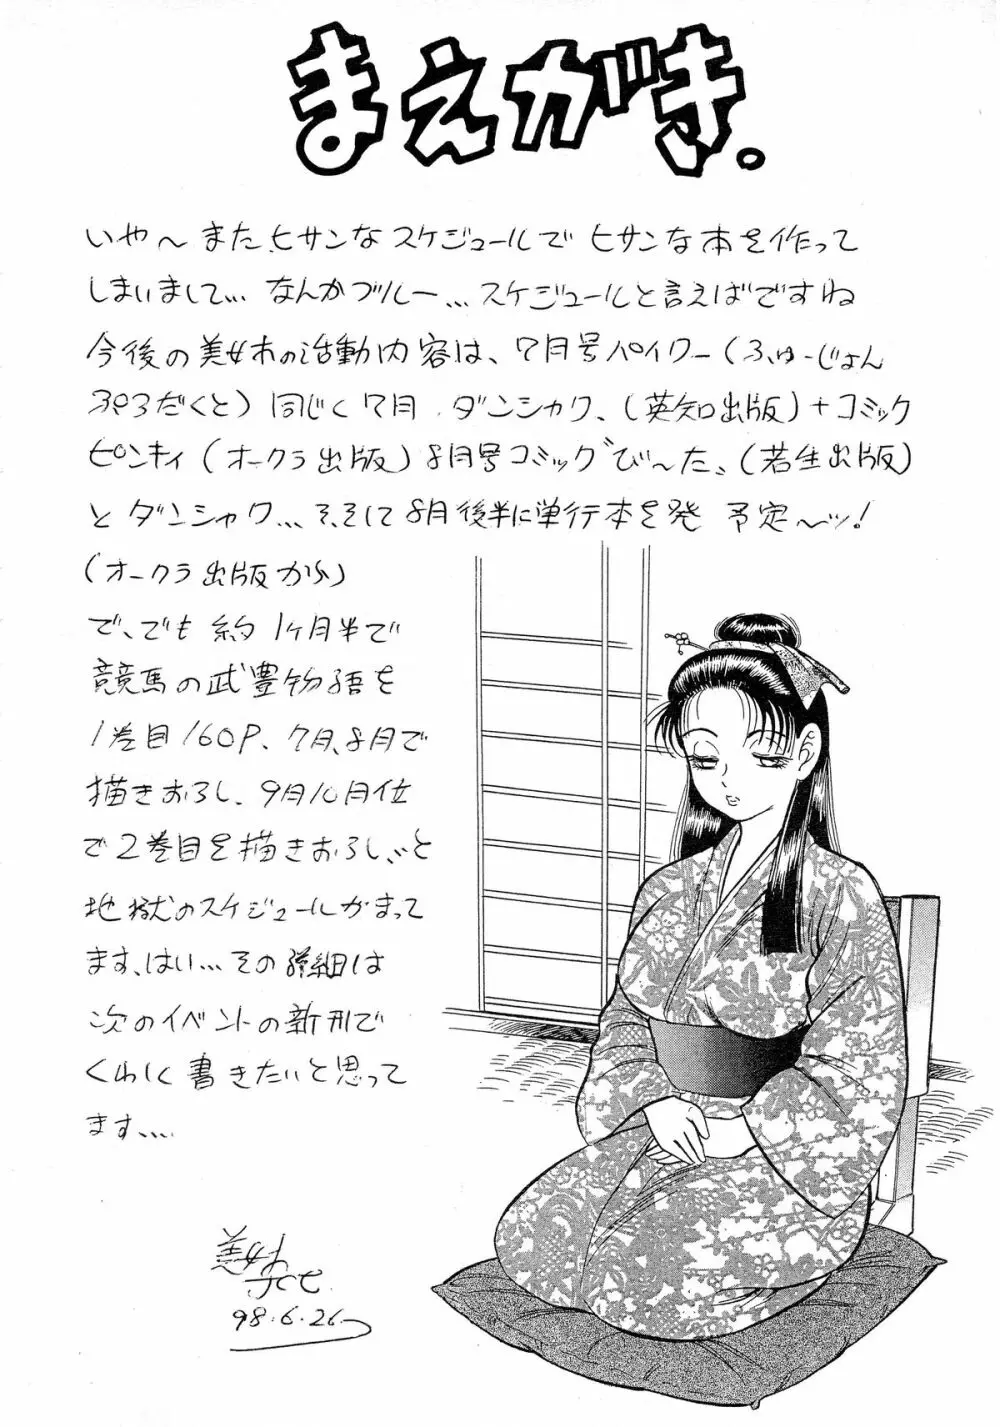 まえがき。
いや～また、ヒサンなスケジュールでヒサンな本を作って
しまいまして… なんかブルー… スケジュールと言えばですね
今後の美女木の活動内容は、7月号パイワー(ふゅーじょん
ぷろだくと) 同じく7月 ダンシャク、(英知出版)+コミック
ピンキィ(オークラ出版) 8月号コミックび～た、(若生出版)
とダンシャク… そ、そして8月後半に単行本を発 予定～ッ!
(オークラ出版から)
で、でも 約1ヶ月半で
競馬の武豊物語を
1巻目160P、7月、8月で
描きおろし、9月10月位
で2巻目を描きおろし、と
地獄のスケジュールがまって
ます、はい… その詳細は
次のイベントの新刊で
くわしく書きたいと思って
ます…
美女木
98.6.26